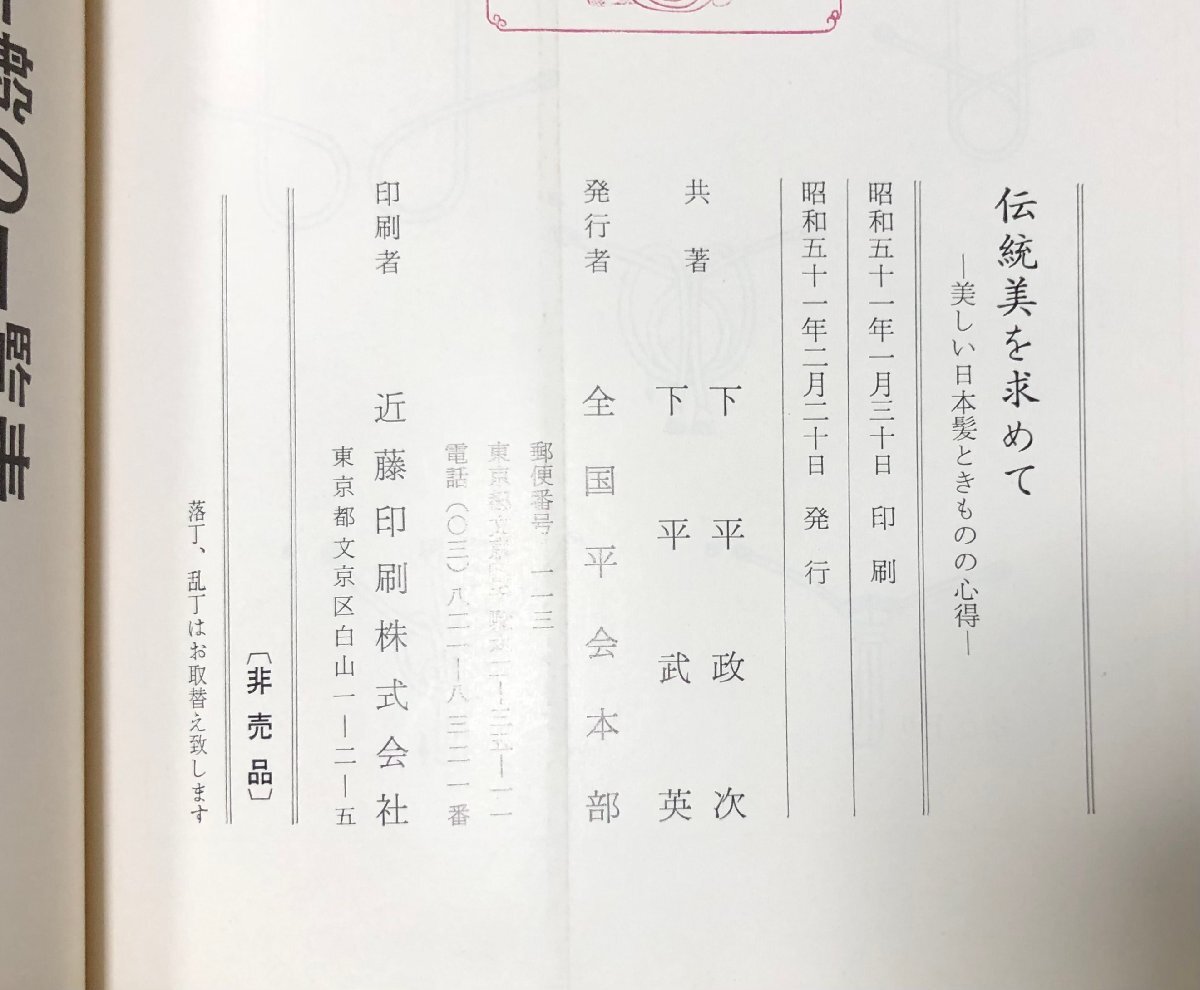 伝統美を求めて
―美しい日本髪ときものの心得―
昭和五十一年一月三十日 印刷
昭和五十一年二月二十日 発行
共著 下平政次
下平武英
発行者 全国平会本部
郵便番号 一一三
東京都文京区 二―三五―一一
電話(〇三)八二一―八三二一番
印刷者 近藤印刷株式会社
東京都文京区白山一―二―五
〔非売品〕
落丁、乱丁はお取替え致します
の 監書